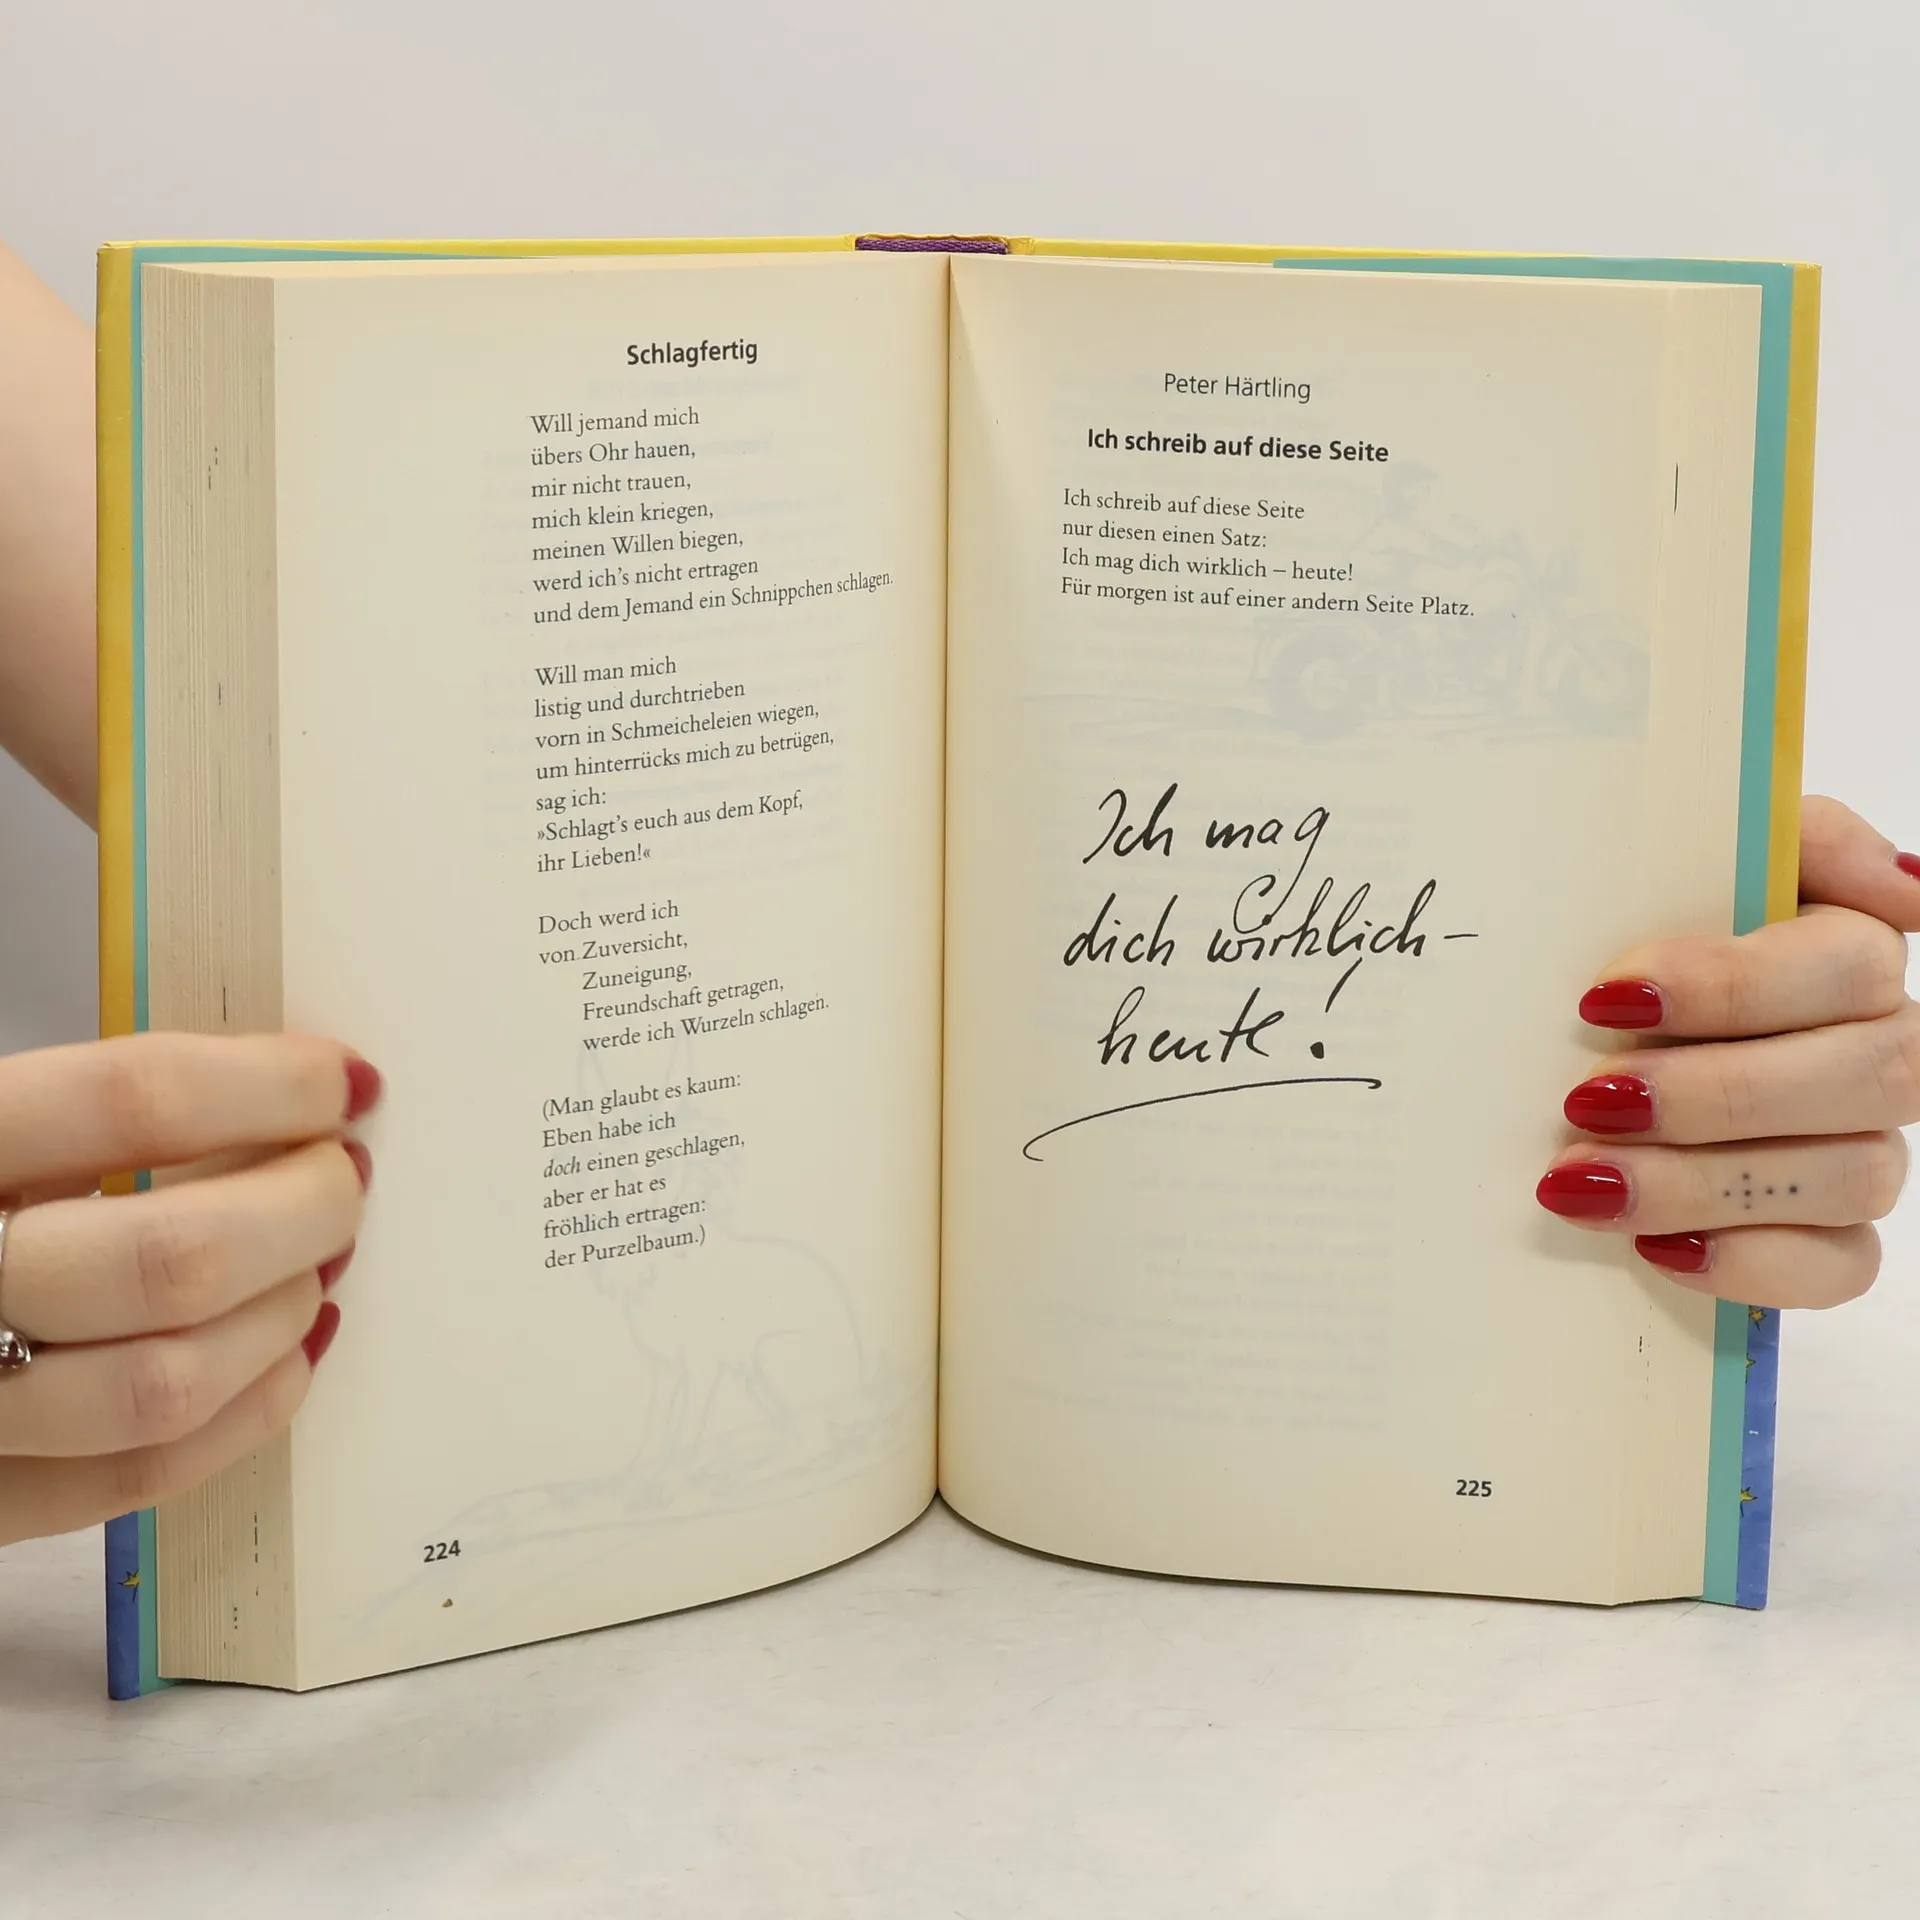 Schlagfertig
Will jemand mich
übers Ohr hauen,
mir nicht trauen,
mich klein kriegen,
meinen Willen biegen,
werd ich's nicht ertragen
und dem Jemand ein Schnippchen schlagen.
Will man mich
listig und durchtrieben
vorn in Schmeicheleien wiegen,
um hinterrücks mich zu betrügen,
sag ich:
»Schlagt's euch aus dem Kopf,
ihr Lieben!«
Doch werd ich
von Zuversicht,
Zuneigung,
Freundschaft getragen,
werde ich Wurzeln schlagen.
(Man glaubt es kaum:
Eben habe ich
doch einen geschlagen,
aber er hat es
fröhlich ertragen:
der Purzelbaum.)
224
Peter Härtling
Ich schreib auf diese Seite
Ich schreib auf diese Seite
nur diesen einen Satz:
Ich mag dich wirklich – heute!
Für morgen ist auf einer andern Seite Platz.
Ich mag
dich wirklich –
heute!
225